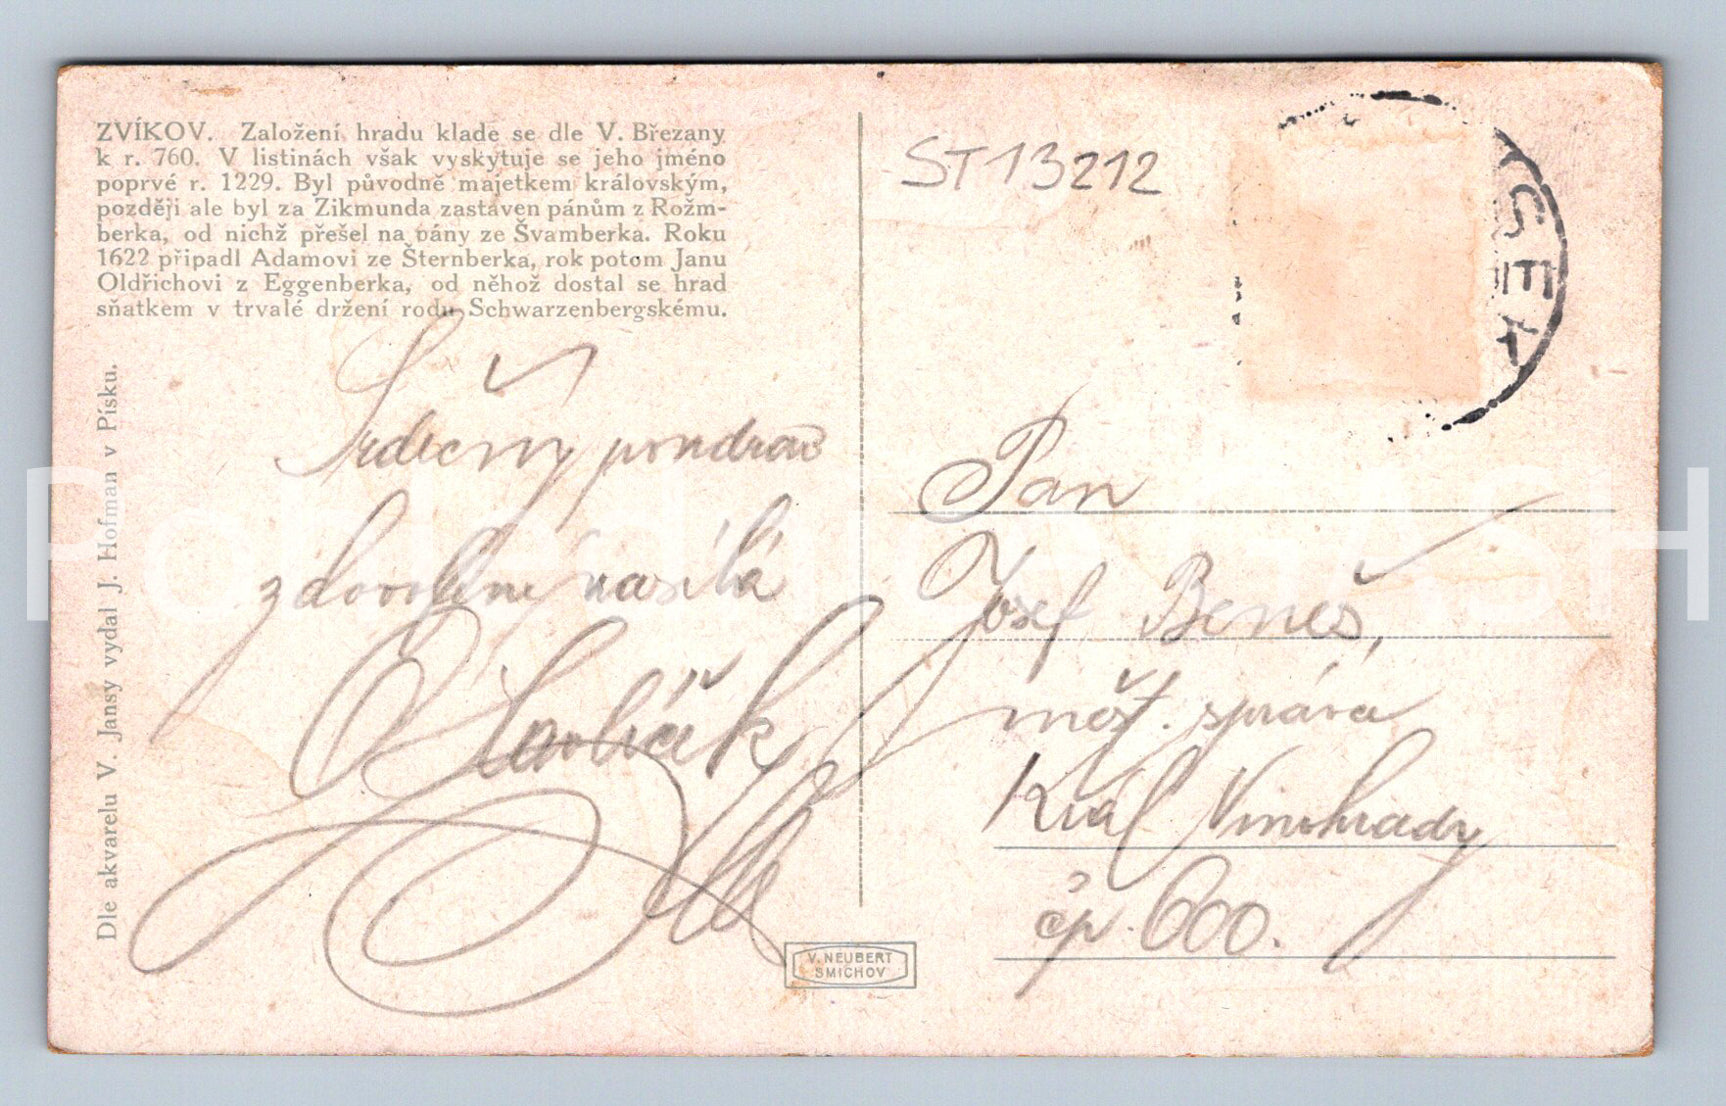 ZVÍKOV. Založení hradu klade se dle V. Březany
k r. 760. V listinách však vyskytuje se jeho jméno
poprvé r. 1229. Byl původně majetkem královským,
později ale byl za Zikmunda zastaven pánům z Rožm-
berka, od nichž přešel na pány ze Švamberka. Roku
1622 připadl Adamovi ze Šternberka, rok potom Janu
Oldřichovi z Eggenberka, od něhož dostal se hrad
sňatkem v trvalé držení rodu Schwarzenbergskému.
Dle akvarelu V. Jansy vydal J. Hofman v Písku.
Srdečný pozdrav
z dovolené zasílá
Havlíček
V. NEUBERT
SMÍCHOV
ST13212
PÍSEK
Pan
Josef Beneš,
měst. správa
Král Vinohrady
čp. 600.